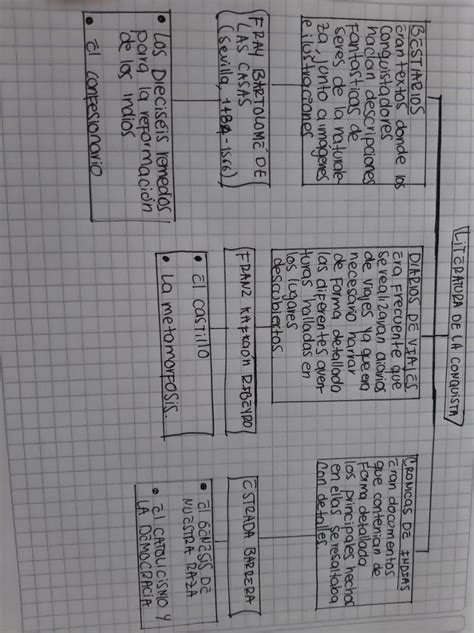 LITERATURA DE LA CONQUISTA
BESTIARIOS
eran textos donde los
conquistadores
hacían descripciones
Fantasticas de
seres de la naturale-
za, junto a imágenes
e ilustraciones
FRAY BARTOLOMÉ DE
LAS CASAS
(Sevilla, 1484-1566)
• Los Dieciséis remedos
para la reformación
de los indios
• El confesionario
DIARIOS DE VIAJES
era frecuente que
se realizaran diarios
de viajes ya que era
necesario narrar
de forma detallada
las diferentes aven-
turas halladas en
los lugares
descubiertos
FRANZ
• El castillo
• La metamorfosis.
CRONICAS DE INDIAS
eran documentos
que contenian de
forma detallada
los principales hechos
en ellas se resaltaba
con detalles
ESTRADA BARRERA
• El GÉNESIS DE
NUESTRA RAZA
• El CATOLICISMO Y
LA DEMOCRACIA